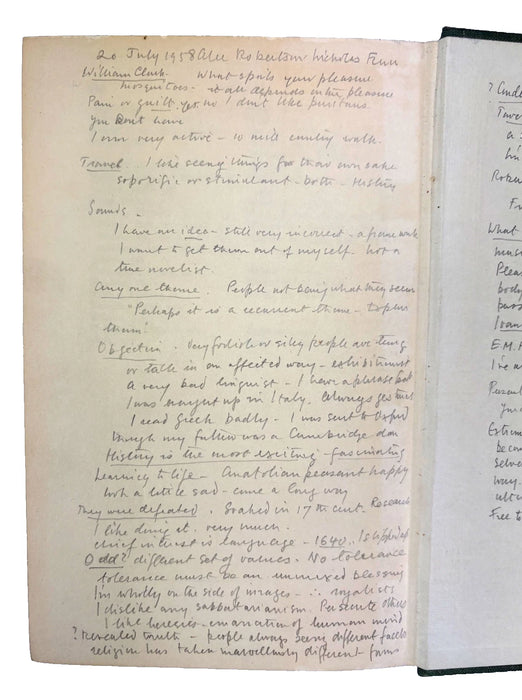 20 July 1958 Alec Robertson Nicholas Fenn
William Clark. What spoils your pleasure
mosquitoes - it all depends on the pleasure
Pain or guilt. yes no I don't like puritans
You don't have
I am very active - 10 mile country walk.
Travel. I like seeing things for their own sake
soporific or stimulant - both - History
Sounds -
I have an idea - still very incorrect - a frame work
I want to get them out of myself. Not a
true novelist.
Any one theme. People not being what they seem
"Perhaps it is a recurrent theme - to plus
them"
Objection. Very foolish or silly people
or talk in an affected way - exhibitionist
A very bad linguist - I have a phrase book
I was brought up in Italy. Always
I read Greek badly - I was sent to Oxford
though my father was a Cambridge don
History is the most exciting - fascinating
Learning to life - Anatolian peasant happy
Not a little sad - came a long way
They were defeated. Soaked in 17th cent. Research
I like doing it. very much.
chief interest is language - 1640. I
Odd? different set of values. No tolerance
tolerance must be an unmixed blessing
I'm wholly on the side of mirages - ∴ royalists
I dislike any sabbatarianism. Persecute others
I like heresies - emanation of human mind
? Revealed truth - people always seeing different facets
religion has taken marvellously different forms
? Unde
Trave
a
lin
Rober
F
What
music
Pleas
body
pass
I can
E.M.F
I've a
Persecu
Extrem
becom
selve
way -
ulti
Free to